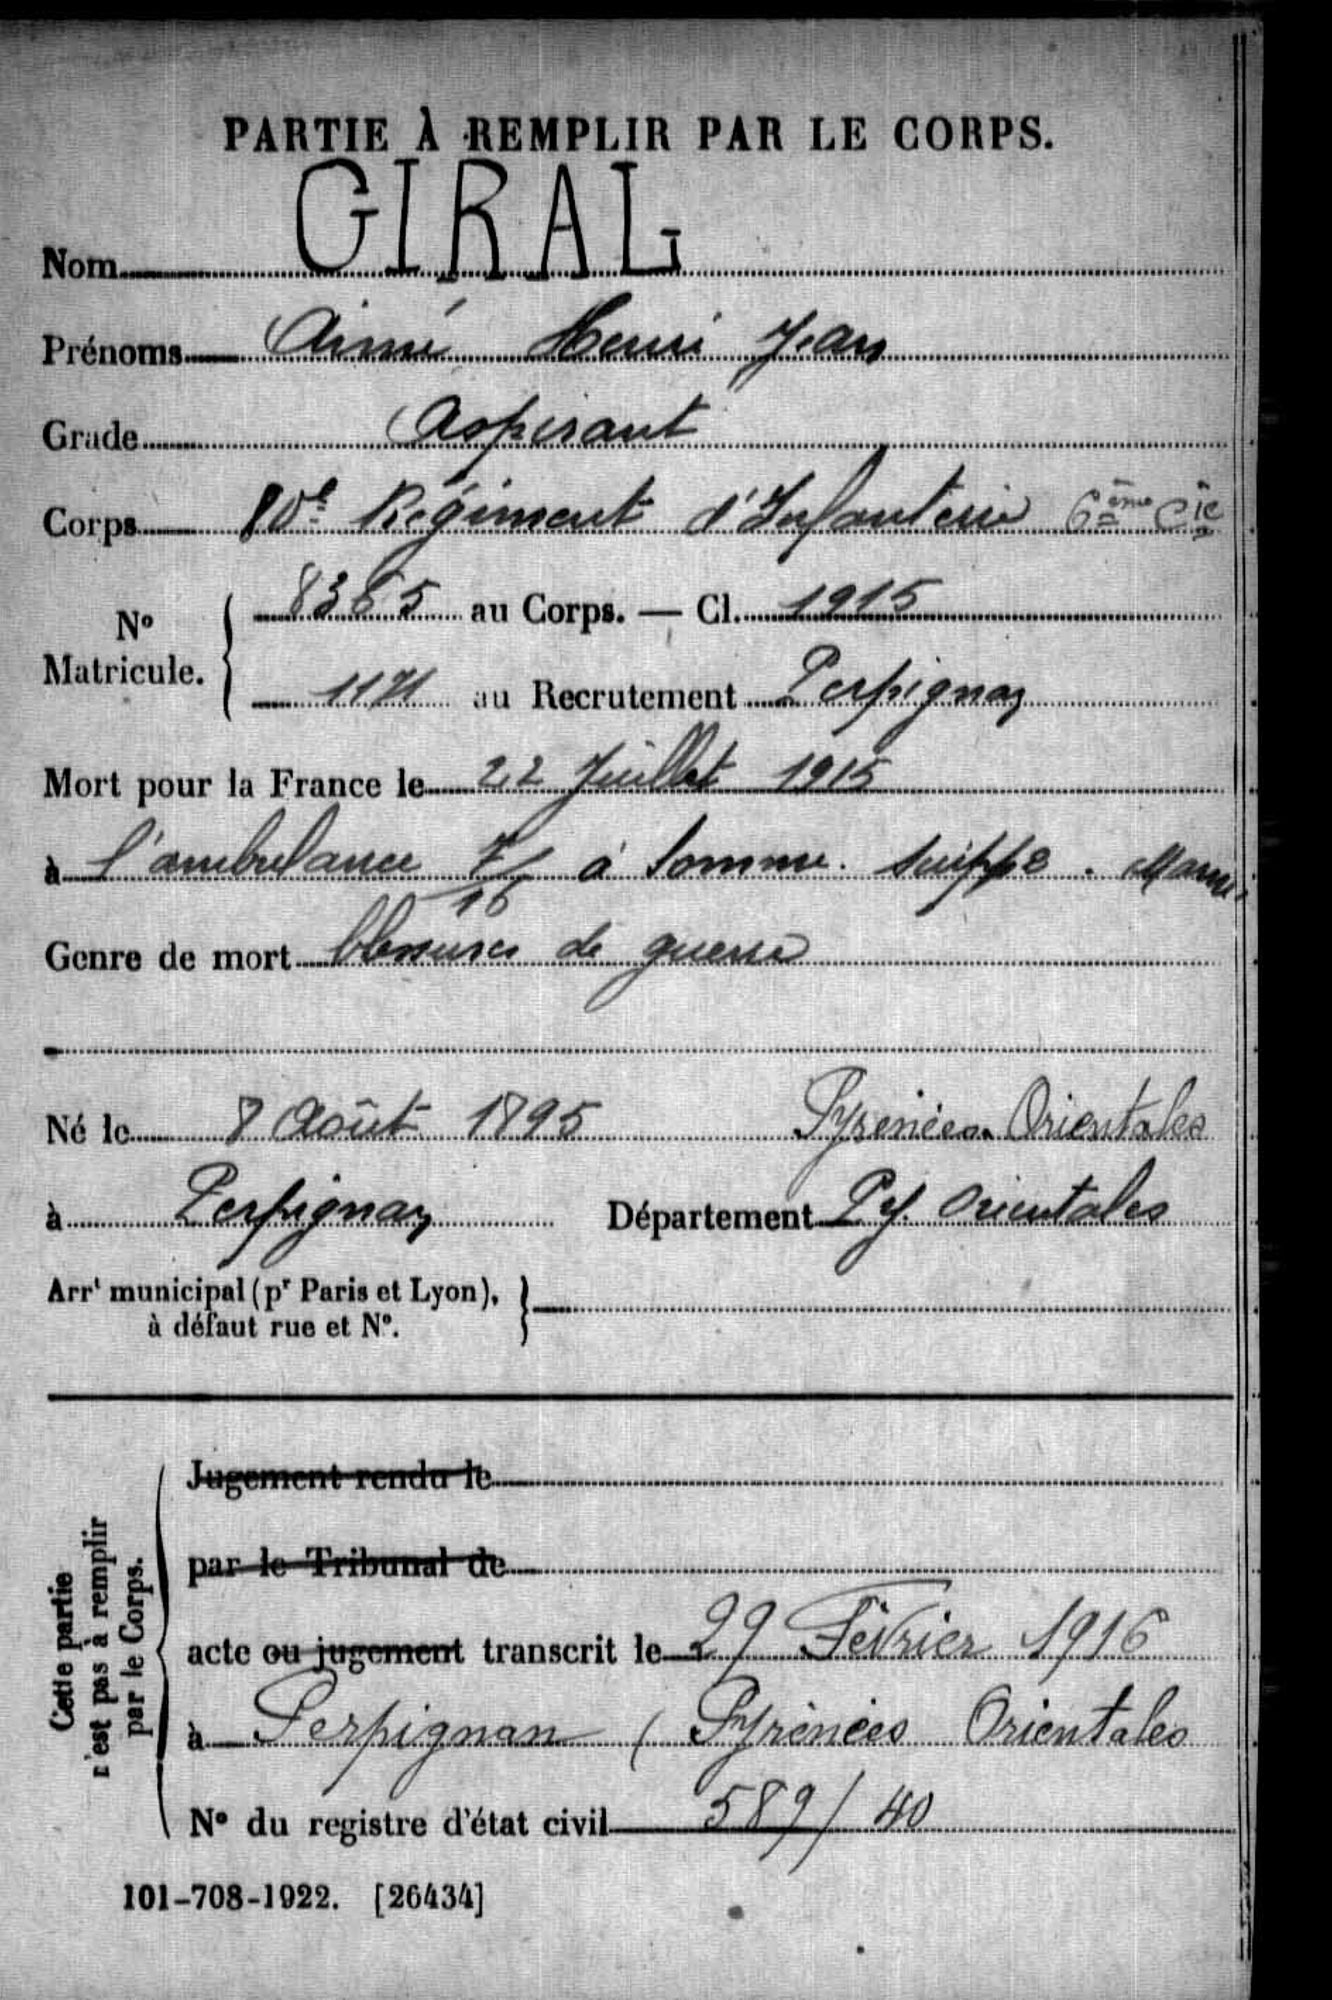 PARTIE À REMPLIR PAR LE CORPS.
Nom GIRAL
Prénoms Aimé Henri Jean
Grade Aspirant
Corps 80e Régiment d'Infanterie 6ème Cie
N° Matricule. 8365 au Corps. — Cl. 1915
1171 au Recrutement Perpignan
Mort pour la France le 22 Juillet 1915
à l'ambulance 7/16 à Somme. Suippe. Marne
Genre de mort blessures de guerre
Né le 8 Août 1895 Pyrénées Orientales
à Perpignan Département Py. Orientales
Arrt municipal (pr Paris et Lyon),
à défaut rue et N°.
Cette partie
n'est pas à remplir
par le Corps.
Jugement rendu le
par le Tribunal de
acte ou jugement transcrit le 29 Février 1916
à Perpignan (Pyrénées Orientales
N° du registre d'état civil 589/40
101-708-1922. [26434]